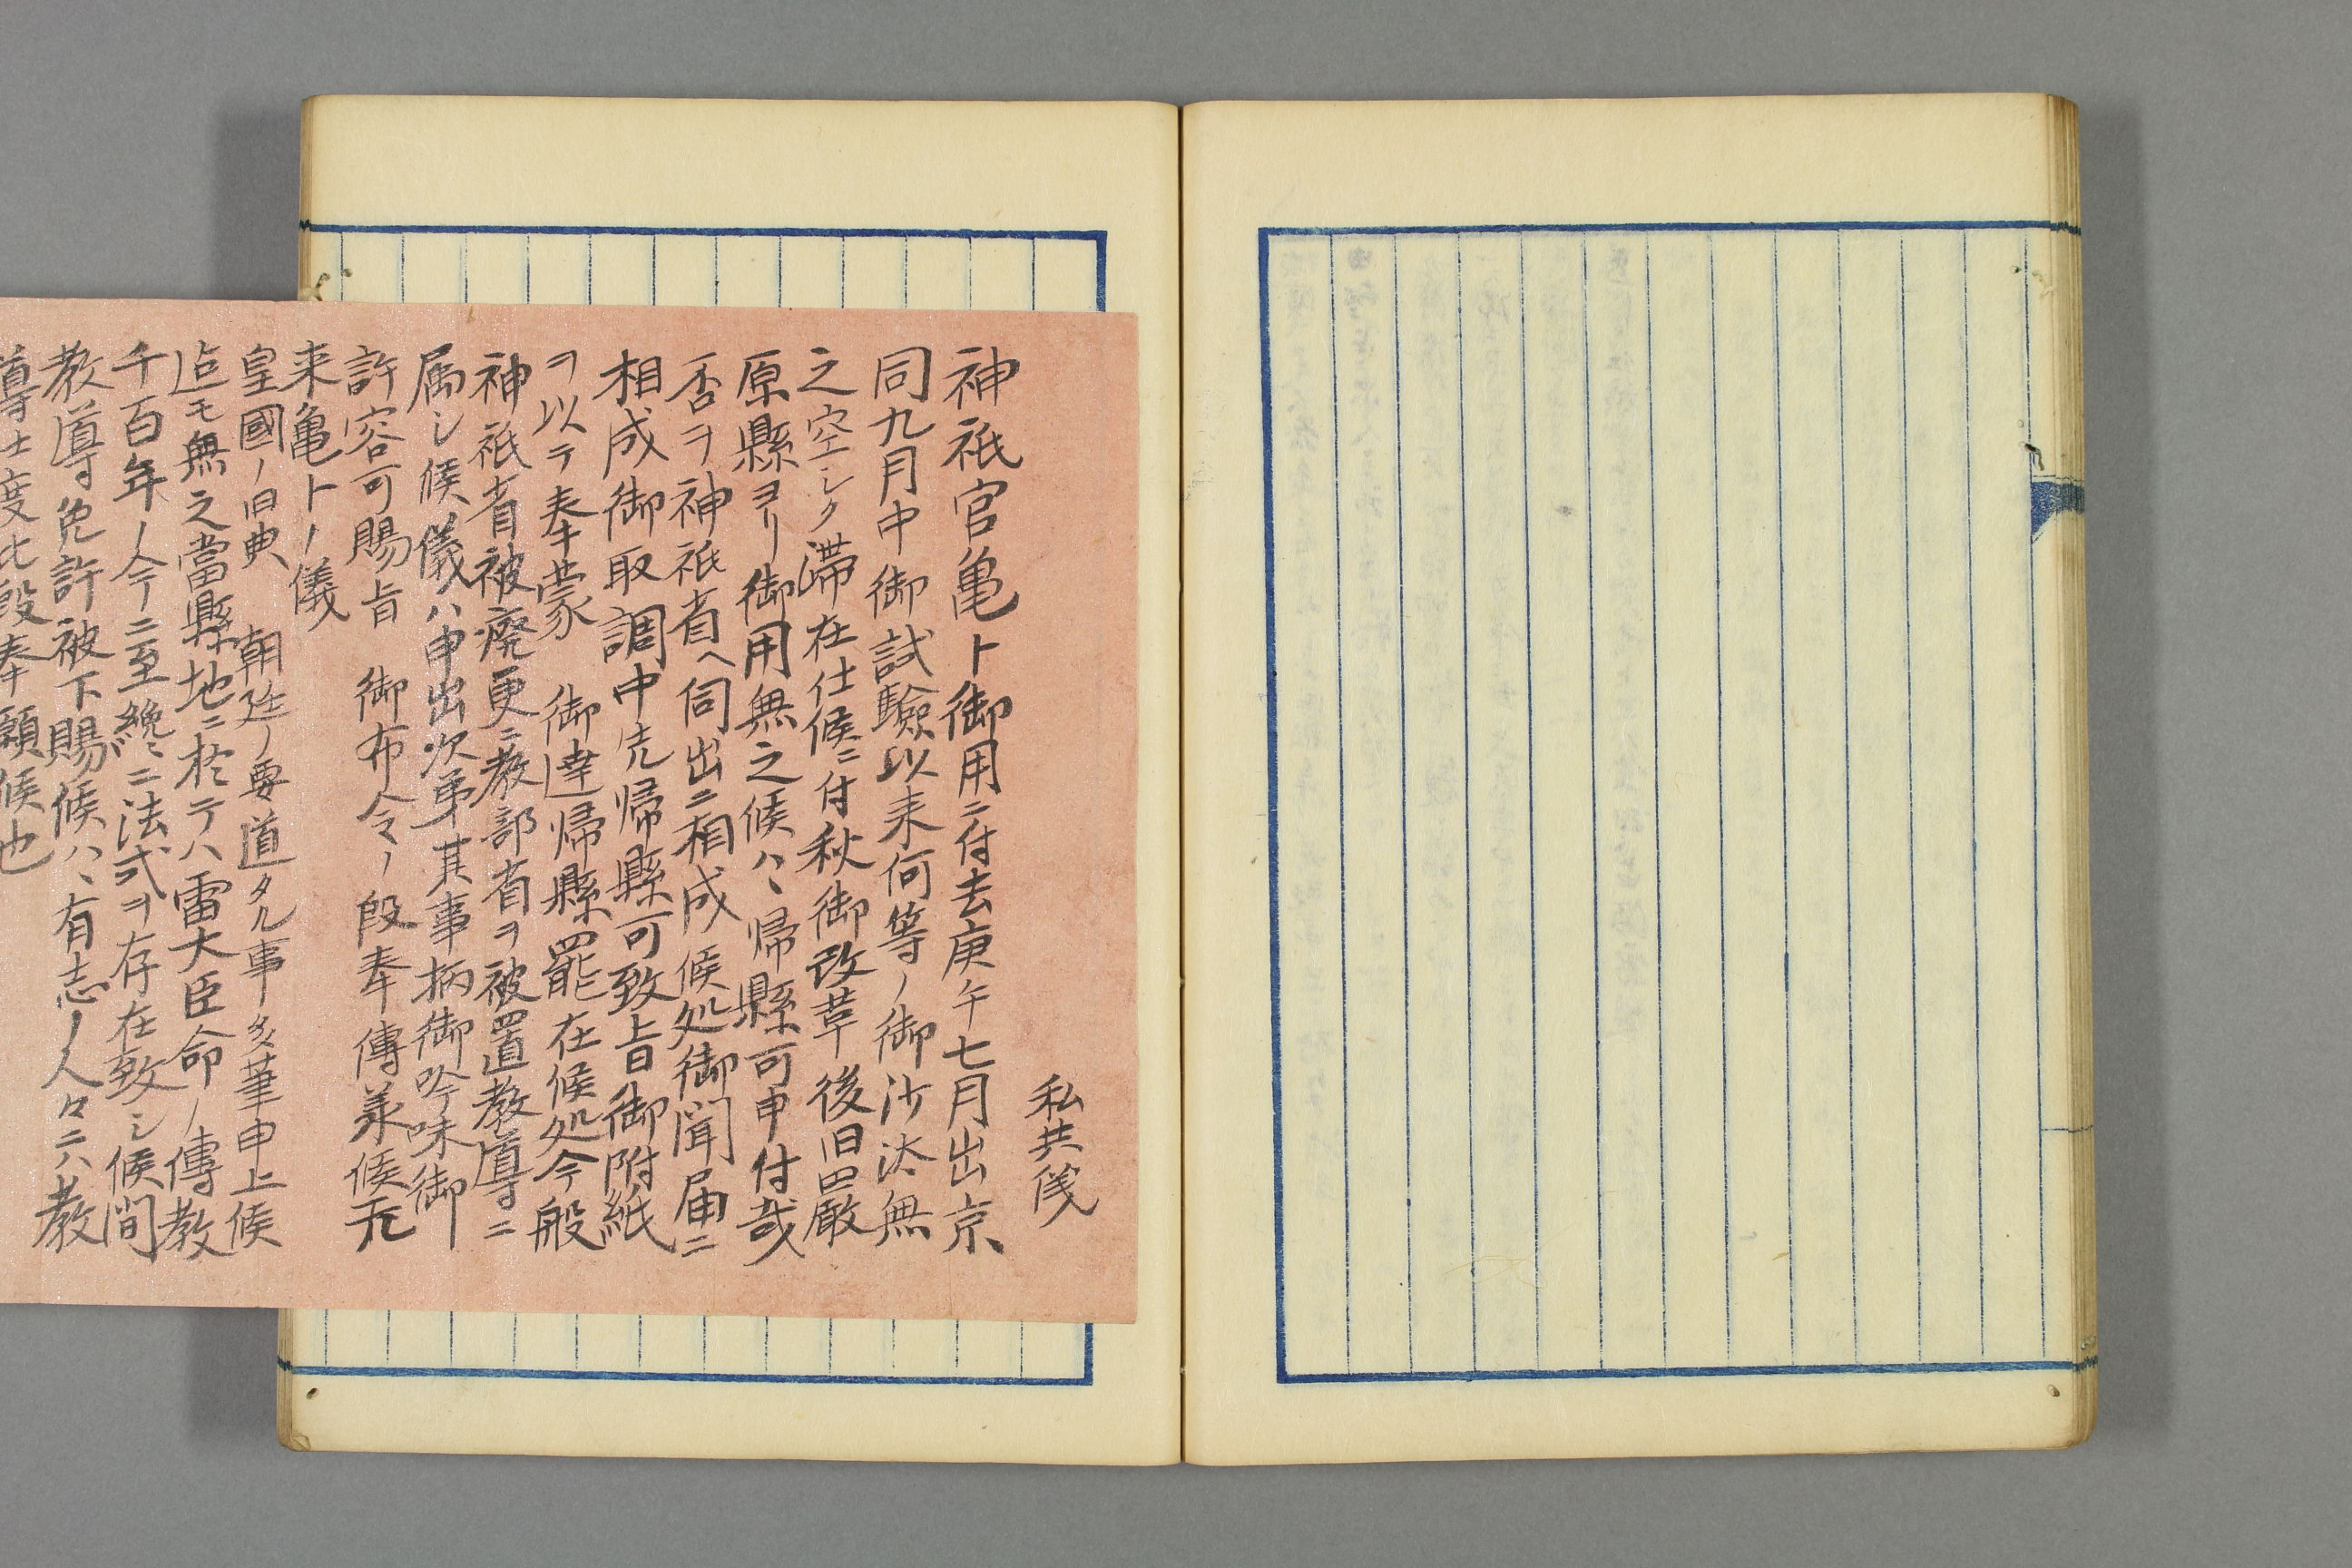 私共儀
神祇官亀ト御用ニ付去庚午七月出京
同九月中御試驗以来何等ノ御沙汰無
之空シク滞在仕候ニ付秋御改革後旧巴嚴
原縣ヨリ御用無之候ハヽ帰縣可申付哉
否ヲ神祇省ヘ伺出ニ相成候処御聞届ニ
相成御取調中先帰縣可致旨御附紙
ヲ以テ奉蒙 御達帰縣罷在候処今般
神祇省被廃更ニ教部省ヲ被置教導ニ
属シ候儀ハ申出次第其事柄御吟味御
許容可賜旨 御布令ノ段奉傳羕候元
来亀トノ儀
皇國ノ旧典 朝廷ノ要道タル事多筆申上候
迠モ無之當縣地ニ於テハ雷大臣命ノ傳教
千百年ノ今ニ至纔ニ二法式ヲ存在致シ候間
教導免許被下賜候ハヽ有志ノ人々ニハ教
導士度此段奉願候也